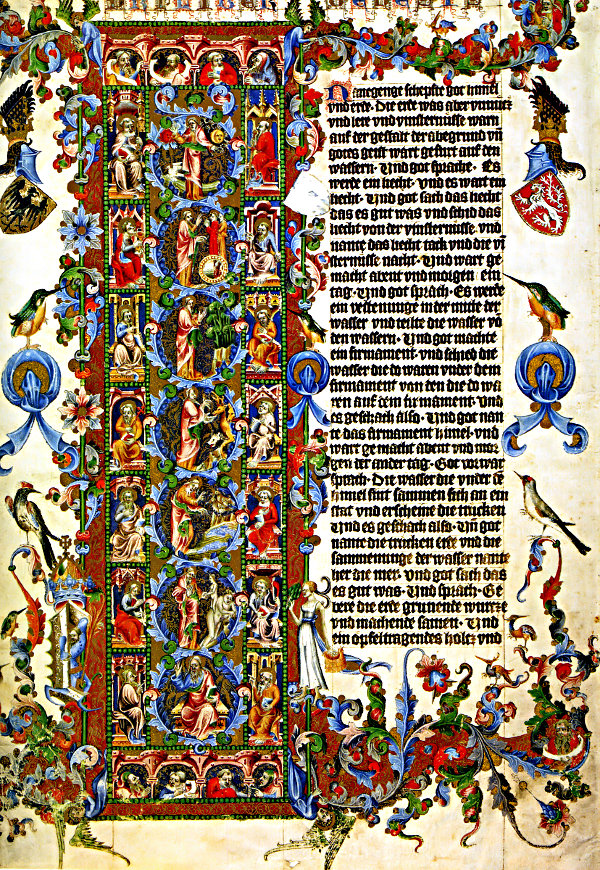 N anegenge schepfte got himel
vnd erde. Die erde was aber vnnutz
vnd lere vnd vinsternusse warn
auf der gestalt der abegrund vn̄
gotes geist wart gefurt auf den
wassern. Vnd got sprache. Es
werde ein liecht. Vnd es wart ein
liecht. Vnd got sach das liecht
das es gut was vnd schid das
liecht von der vinsternusse. vnd
nante das liecht tack vnd die vī
sternusse nacht. Vnd wart ge
macht abent vnd morgen ein
tag. Vnd got sprach. Es werde
ein vestenunge in der mitte der
wasser vnd teilte die wasser vō
den wassern. Vnd got machte
ein firmament. vnd schied die
wasser die do waren vnder dem
firmament von den die do wa
ren auf dem firmament. Vnd
es geschach also. Vnd got nan
te das firmament himel. vnd
wart gemacht abent vnd mor
gen der ander tag. Got vorwar
sprach. Die wasser die vnder dē
himel sint sammen sich an ein
stat vnd erscheine die trucken
Vnd es geschach also. Vn̄ got
nante die trucken erde vnd die
sammenunge der wasser nante
her die mer. Vnd got sach das
es gut was. Vnd sprach. Ge
bere die erde grunende wurtze
vnd machende samen. Vnd
ein opfeltragendes holtz vnd